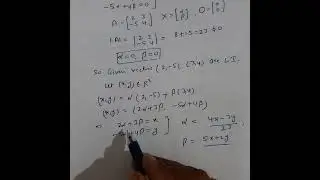 -5α+4β=0
A = [2 3 -5 4] X = [α β], O = [0 0]
|A| = |2 3 -5 4| = 8+15=23 ≠0
α=0, β=0
So, Given vectors (2,-5), (3,4) are L.I.
Let (x,y) ∈ R²
(x,y) = α(2,-5) + β(3,4)
(x,y) = (2α+3β, -5α+4β)
⇒ 2α+3β=x
-5α+4β=y } α = 4x-3y/23
β = 5x+2y